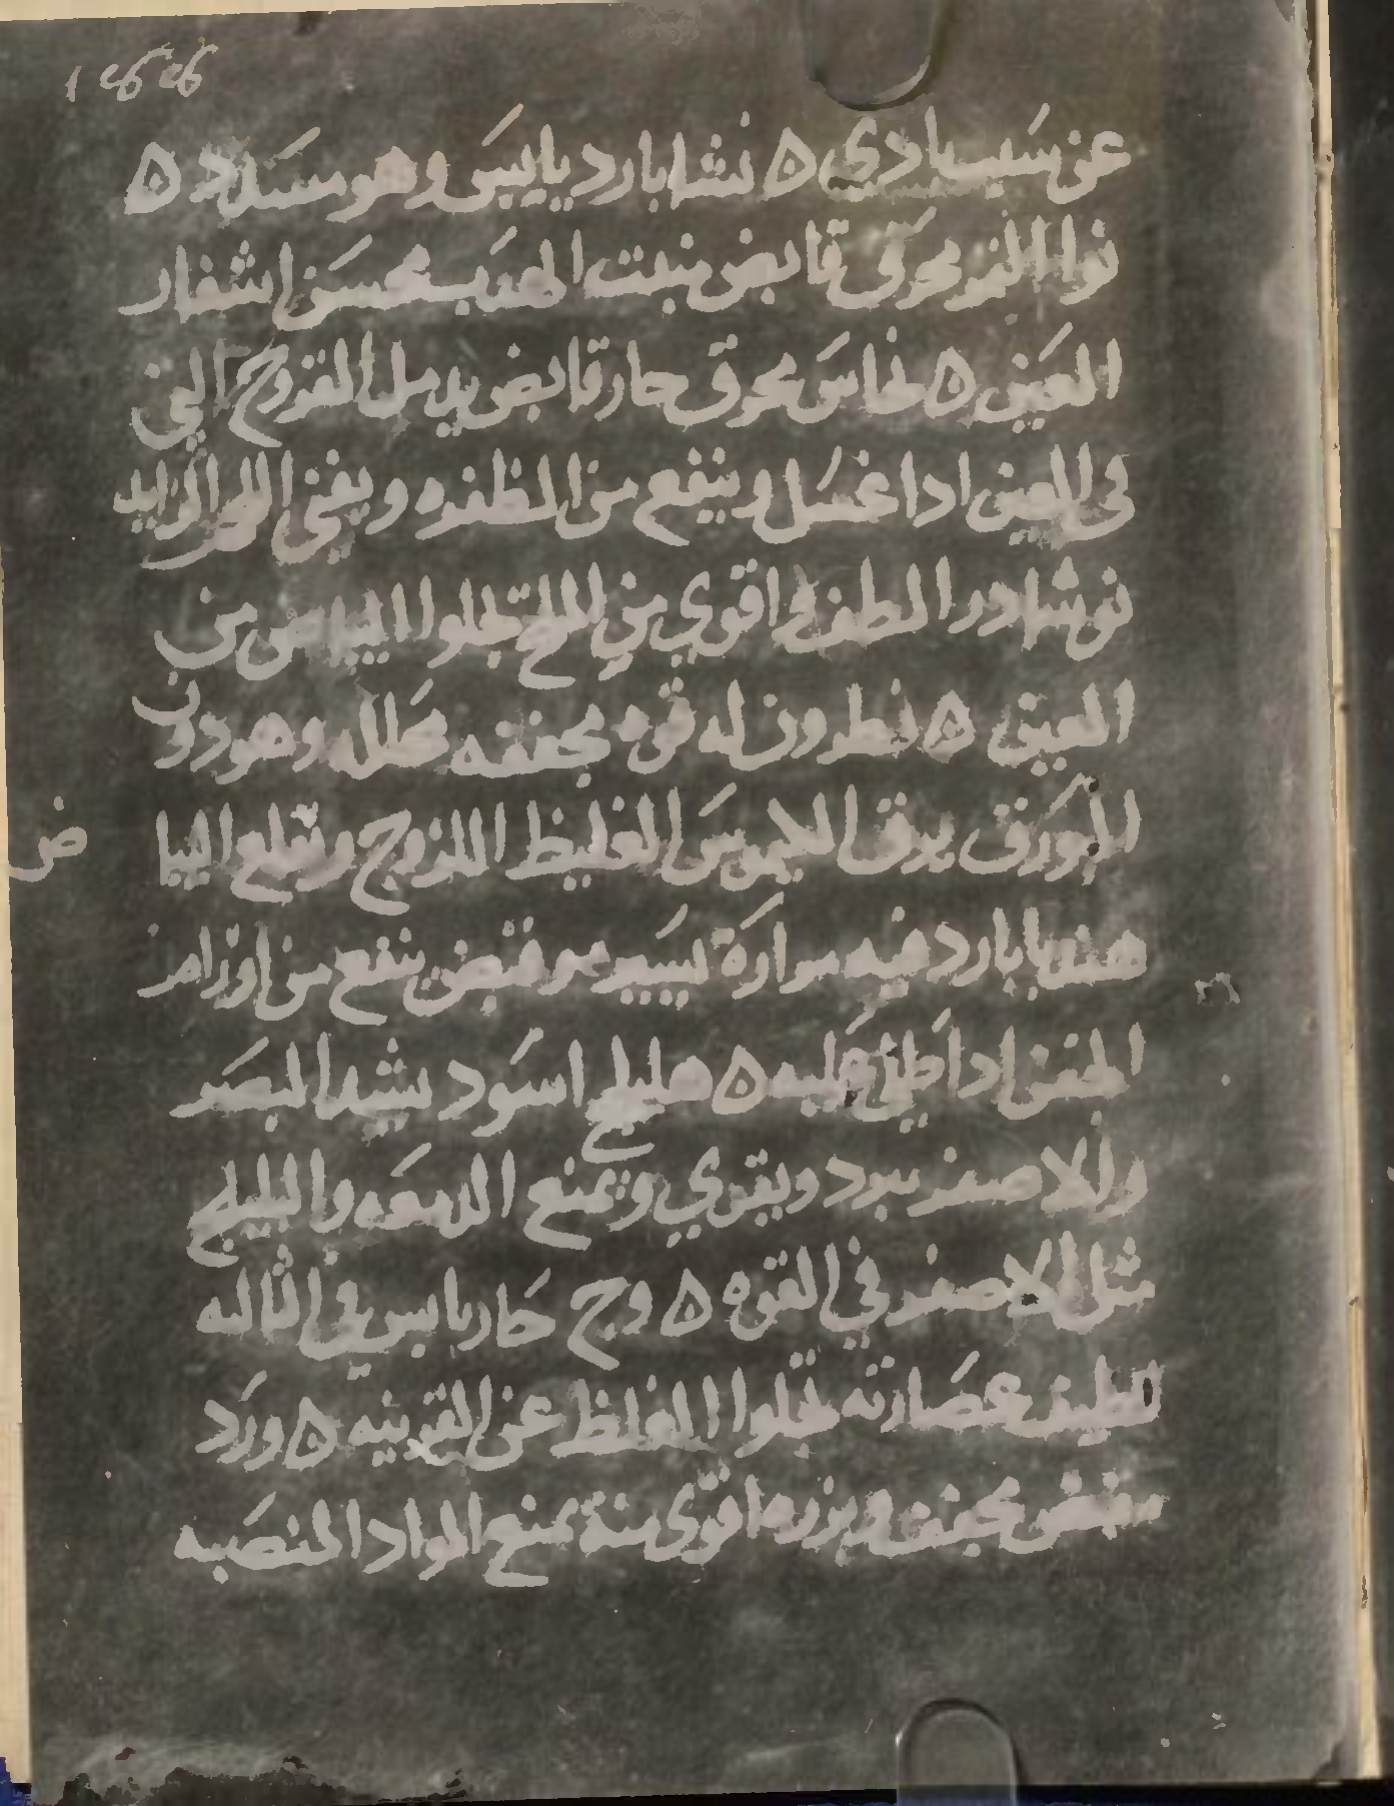 عن سبب بادي ٥ نشا بارد يابس وهو مسدد ٥
نوا التمر محرق قابض منبت الهدب محسن اشفار
العين ٥ نحاس محرق حار قابض يدمل القروح التي
في العين اذا غسل وينفع من الظفره ويفني اللحم الزايد
نوشادر الطف واقوي من الملح تجلوا البياض من
العين ٥ نطرون له قوه مجففه محلله وهو دون
البورق يرق الكيموس الغليظ اللزوج ويقلع البيا
ض
هندبا بارد فيه مرارة يسير مع قبض ينفع من اورام
الجفن اذا طلي عليه ٥ هليلج اسود يشد البصر
والاصفر يبرد ويقوي ويمنع الدمعه والبليلج
مثل الاصفر في القوه ٥ وج حار يابس في الثالثه
لطيف عصارته تجلوا الغلظ عن القرنيه ٥ ورد
مقبض مجفف وبزره اقوى منة يمنع المواد المنصبه